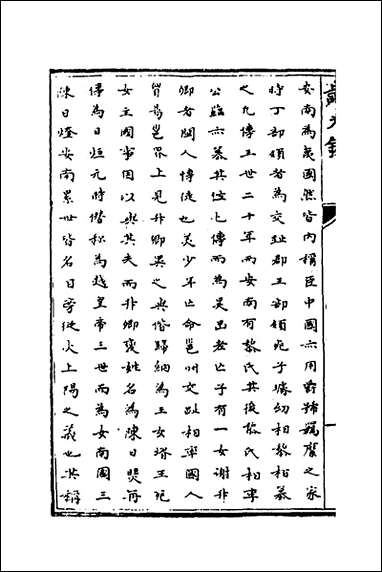 安南為夷國然皆內稱臣中國六用爵號羈縻之宋
時丁部領者為交趾郡王部領死子璿幼相黎桓簒
之凡傳王世二十年而安南有黎氏其後黎氏相李
公蘊六簒其位七傳而為昊旵老亡子有一女謝升
卿者閩人博徒也美少年亡命邕州交趾相率國人
貿易邕界上見升卿異之與偕歸納為王女壻王死
女主國事因以與其夫而升卿變姓名為陳日煚再
傳為日烜元時僭稱為越皇帝三世而為安南國三
陳日燇安南累世皆名日旁從火上陽之義也其稱